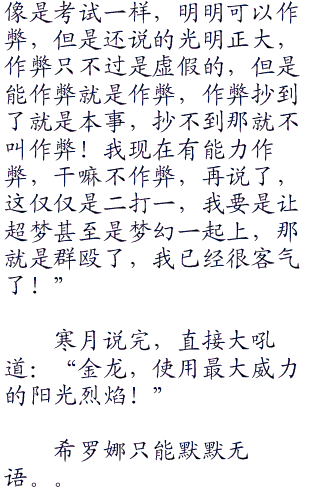 像是考试一样，明明可以作
弊，但是还说的光明正大，
作弊只不过是虚假的，但是
能作弊就是作弊，作弊抄到
了就是本事，抄不到那就不
叫作弊！我现在有能力作
弊，干嘛不作弊，再说了，
这仅仅是二打一，我要是让
超梦甚至是梦幻一起上，那
就是群殴了，我已经很客气
了！”
寒月说完，直接大吼
道：“金龙，使用最大威力
的阳光烈焰！”
希罗娜只能默默无
语。。